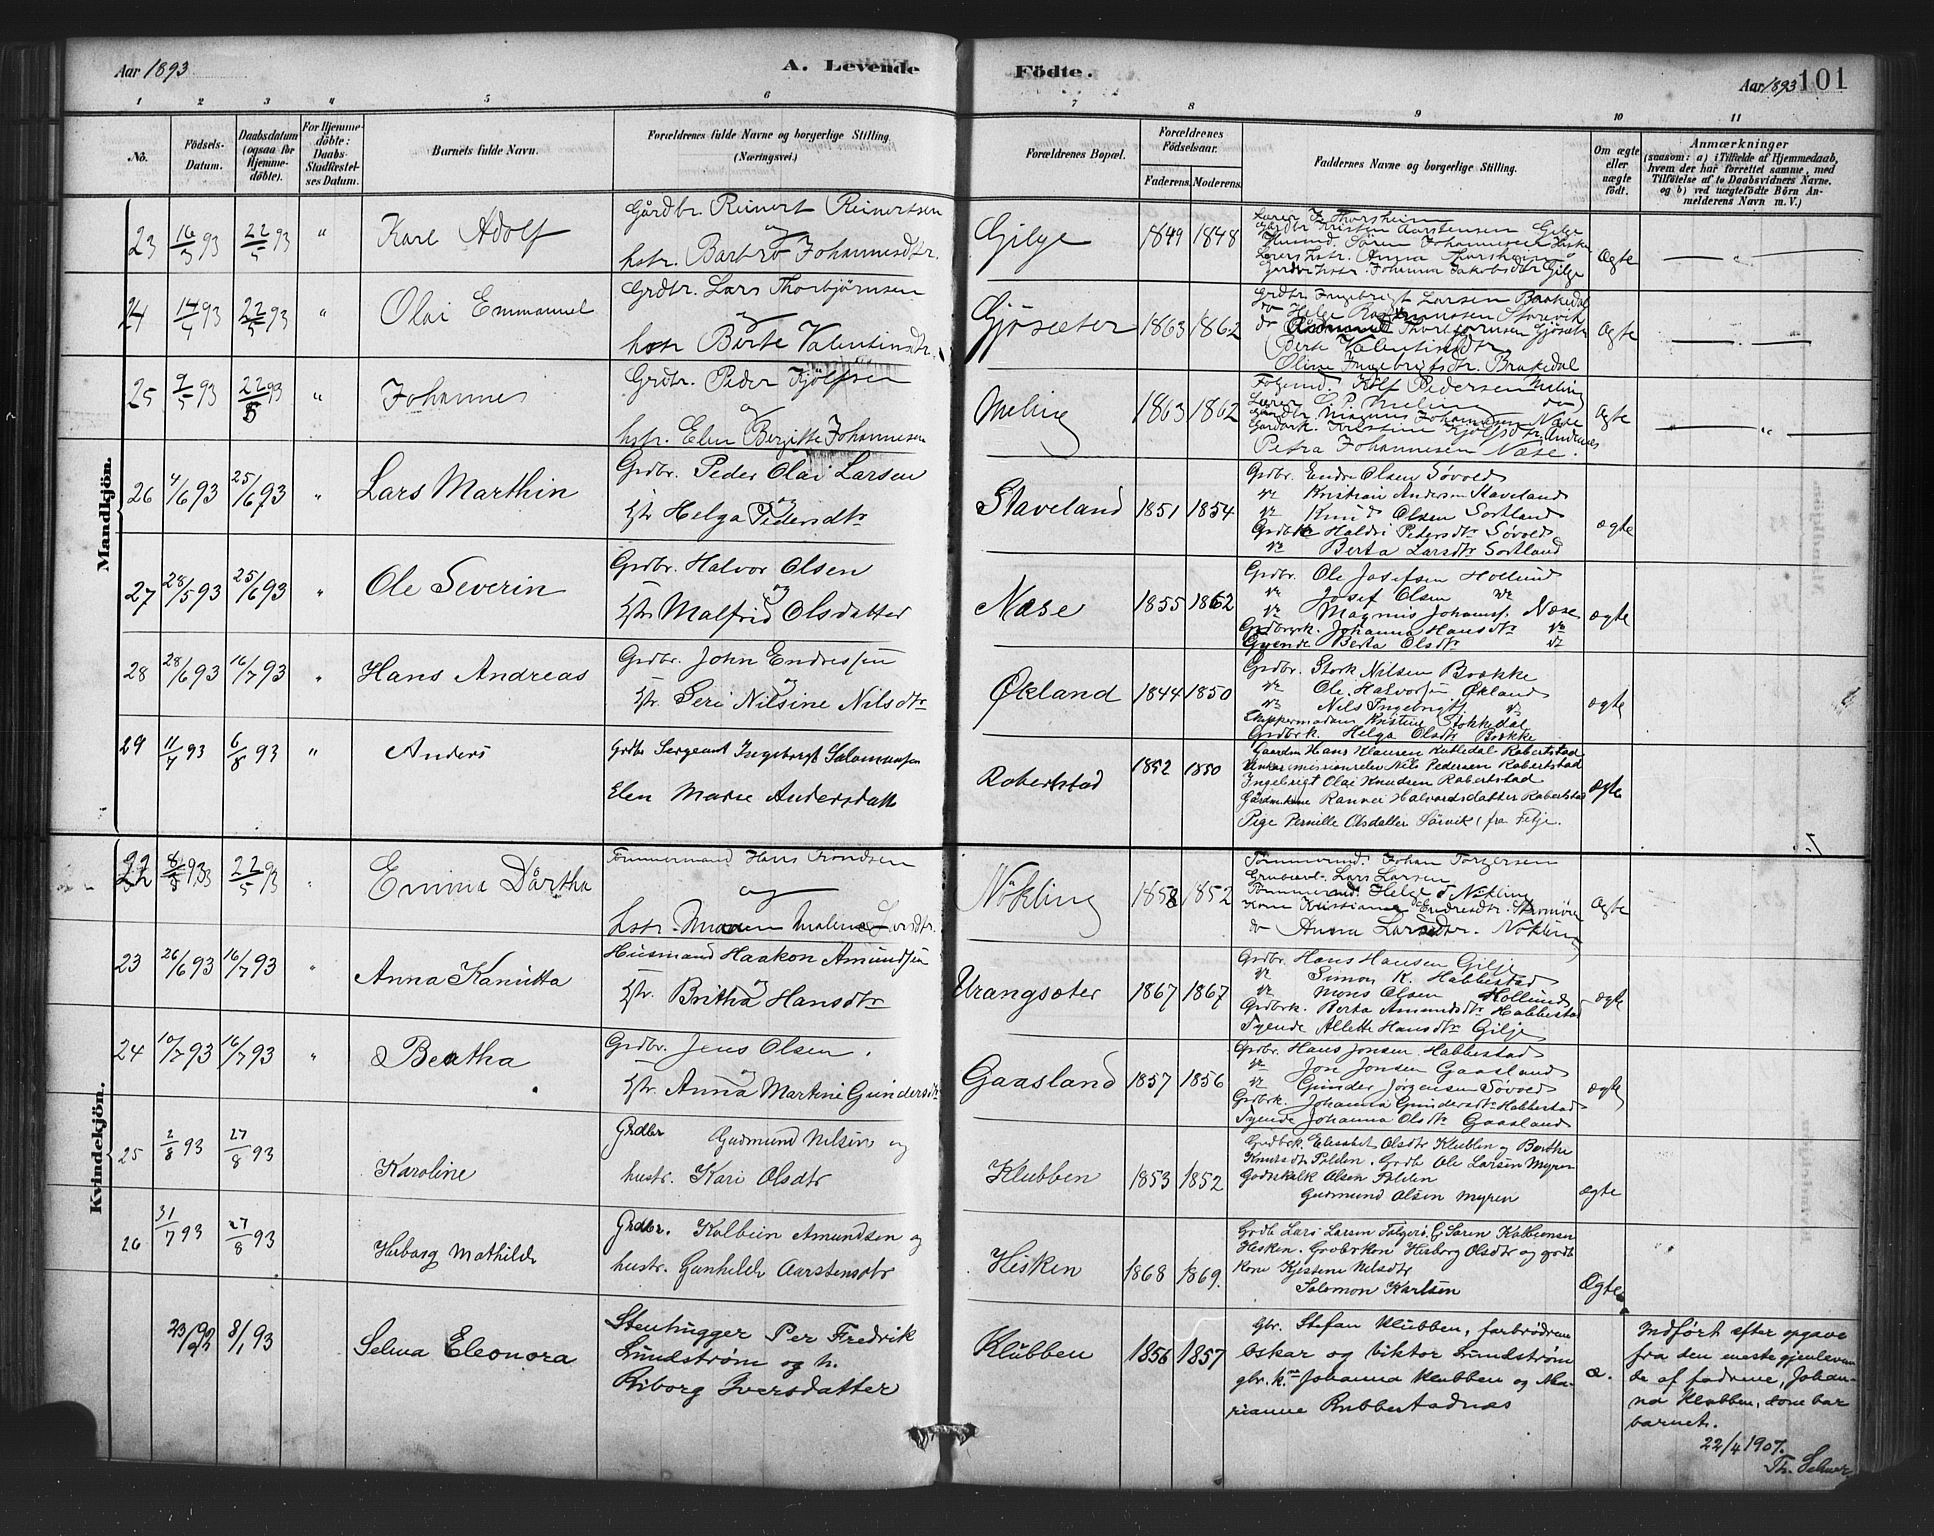 Aar 1893
A. Levende
Födte.
Aar 1893
101
1 2 3 4 5 6 7 8 9 10 11
No.
Födsels-
Datum.
Daabsdatum
(ogsaa for
Hjemme-
döbte).
For Hjemme-
döbte:
Daabs-
Stadfæstel-
ses Datum.
Barnets fulde Navn.
Forældrenes fulde Navne og borgerlige Stilling.
(Næringsvei.)
Forældrenes Bopæl.
Forældrenes
Födselsaar.
Faderens. Moderens.
Faddernes Navne og borgerlige Stilling.
Om ægte
eller
uægte
födt.
Anmærkninger
(saasom: a) i Tilfælde af Hjemmedaab,
hvem der har forrettet samme, med
Tilföielse af to Daabsvidners Navne.
og b) ved uægtefödte Börn An-
melderens Navn m. V.)
Mandkjön.
23 16/3 93 22/5 93 " Karl Adolf
Gårdbr Reinert Reinertsen
og
hstr. Barbro Johannesdtr.
Gilje 1849 1848
Lærer J. Thorsheim
Gårdbr Kristen Aarstensen Gilje
Husmd. Sören Johannesen Hisken
Lærershstr. Anna Thorsheim
Gårdbrhstr. Johanna Jakobsdtr Gilje
Ægte
24 14/4 93 22/5 93 " Olai Emmanuel
Grdbr. Lars Thorbjörnsen
og
hstr Berte Valentinsdtr.
Gjösæter 1863 1862
Grdbr Ingebrigt Larsen Brakedal
do Helge Rasmussen Storevik
do Åsmund Thorbjörnsen Gjösæter
Berte Valentinsdtr
Oline Ingebrigtsdtr. Brakedal
Ægte
25 9/5 93 22/5 93 " Johannes
Grdbr. Peder Kjölfsen
og
hstr. Elen Bergitte Johannesen
Meling 1863 1862
Kölf Pedersen Meling
Lærer O. P. Meling do
Gårdbr Magnus Johannesen Næse
Gårdbrk. Kristine Kjölfsdtr
Petra Johannesen Næse.
Ægte
26 4/6 93 25/6 93 " Lars Marthin
Grdbr. Peder Olai Larsen
og
Hstr Helga Pedersdtr
Staveland 1851 1854
Grdbr. Endre Olsen Sövold
do Kristian Andersen Staveland
do Knud Olsen Sortland
Grdbrk Haldri Pedersdtr Sövold
do Berta Larsdtr Sortland
ægte
27 28/5 93 25/6 93 " Ole Severin
Grdbr. Halvor Olsen
og
Hstr Malfrid Olsdatter
Næse 1855 1862
Grdbr. Ole Josefsen Hollund
do Josef Olsen do
do Magnus Johannes. Næse
Grdbrk. Johanna Hansdtr do
Tyende Berta Olsdtr do
ægte
28 28/6 93 16/7 93 " Hans Andreas
Grdbr. John Endressen
og
Hstr. Seri Nilsine Nilsdtr
Økland 1844 1850
Grdbr. Stork Nilsen Brokke
do Ole Halvorsen Økland
do Nils Ingebrigts. do
Skippermadam Kristine Stokkedal
Grdbrk. Helga Olsdtr Brokke
ægte
29 11/7 93 6/8 93 " Anders
Grdbr Sergeant Ingeborgt Salomonsen
Elen Marie Andersdatt
Robertstad 1852 1850
Gaardm Hans Klausen Kulledal Robertstad
Nils Pedersen Robertstad
Ingebrigt Olai Knudsen Robertstad
Gårdmkone Rannei Halvordsdatter Robertstad
Pige Pernille Olsdatter Sörvik (fra Fitje.
ægte
Kvindekjön.
22 22/5 93 Emma Dårtha
Tömmermand Hans Tröndsen
og
hstr. Maren Malene
Nökling 1852
Tömmermd. Johan Torgersen
Lars Larsen
Tömmermd. Helge Nökling
Kone Kristianne Endresdtr.
do Anna Larsdtr. Nökling
Ægte
23 26/6 93 16/7 93 " Anna Kanutta
Husmand Haakon Amundsen
og
Hstr. Britha Hansdtr
Vrangsæter 1867 1867
Grdbr. Hans Hansen Gilje
do Simon K. Habbestad
do Mons Olsen Hollund
Grdbrk. Berta Amundsdtr Habbestad
Tyende Allette Hansdtr Gilje
ægte
24 10/7 93 16/7 93 " Beatha
Grdbr. Jens Olsen.
og
Hstr. Anna Martine Gundersdtr
Gaasland 1857 1856
Grdbr. Hans Jonsen Habbestad
do Jon Jonsen Gaasland
do Gunder Jörgensen Sövold
Grdbrk. Johanna Gundersdtr Habbestad
Tyende Johanna Olsdtr Gaasland
ægte
25 2/8 93 27/8 93 Karoline
Grdbr Gudmund Nilsen og
hustr. Kari Olsdtr
Klubben 1853 1852
Grdbrk Elisabet Olsdtr Klubben og Berthe
Knutsdtr Folden. Grdb Ole Larsen Myren
Olsen Folden
Gudmund Olsen Myren
ægte
26 31/7 93 27/8 93 Herborg Mathilde
Grdbr. Kolbein Amundsen og
hustr. Gunhilde Aarstensdtr
Hisken 1868 1869.
Grdb Lars Larsen Folgerö. G. Sören Kolbeinsen
Hisken. Grdbrkon Herborg Olsdtr og grdb
kone Kjestine Nilsdtr
Salomon Karlsen
Ægte
23/ 92 8/1 93 Selma Eleonora
Stenhugger Per Fredrik
Lundström og h.
Riborg Iversdatter
Klubben 1856 1857
Gbr. Stefan Klubben, farbrödrene
Oskar og Viktor Lundström
gbr. k.ne Johanna Klubben og Ma-
rianne Rubbestadnæs
æ.
Indfört efter opgave
fra den eneste gjenleven
de af fadrene, Johan-
na Klubben, som bar
barnet.
22/4 1907.
Th. Selmer